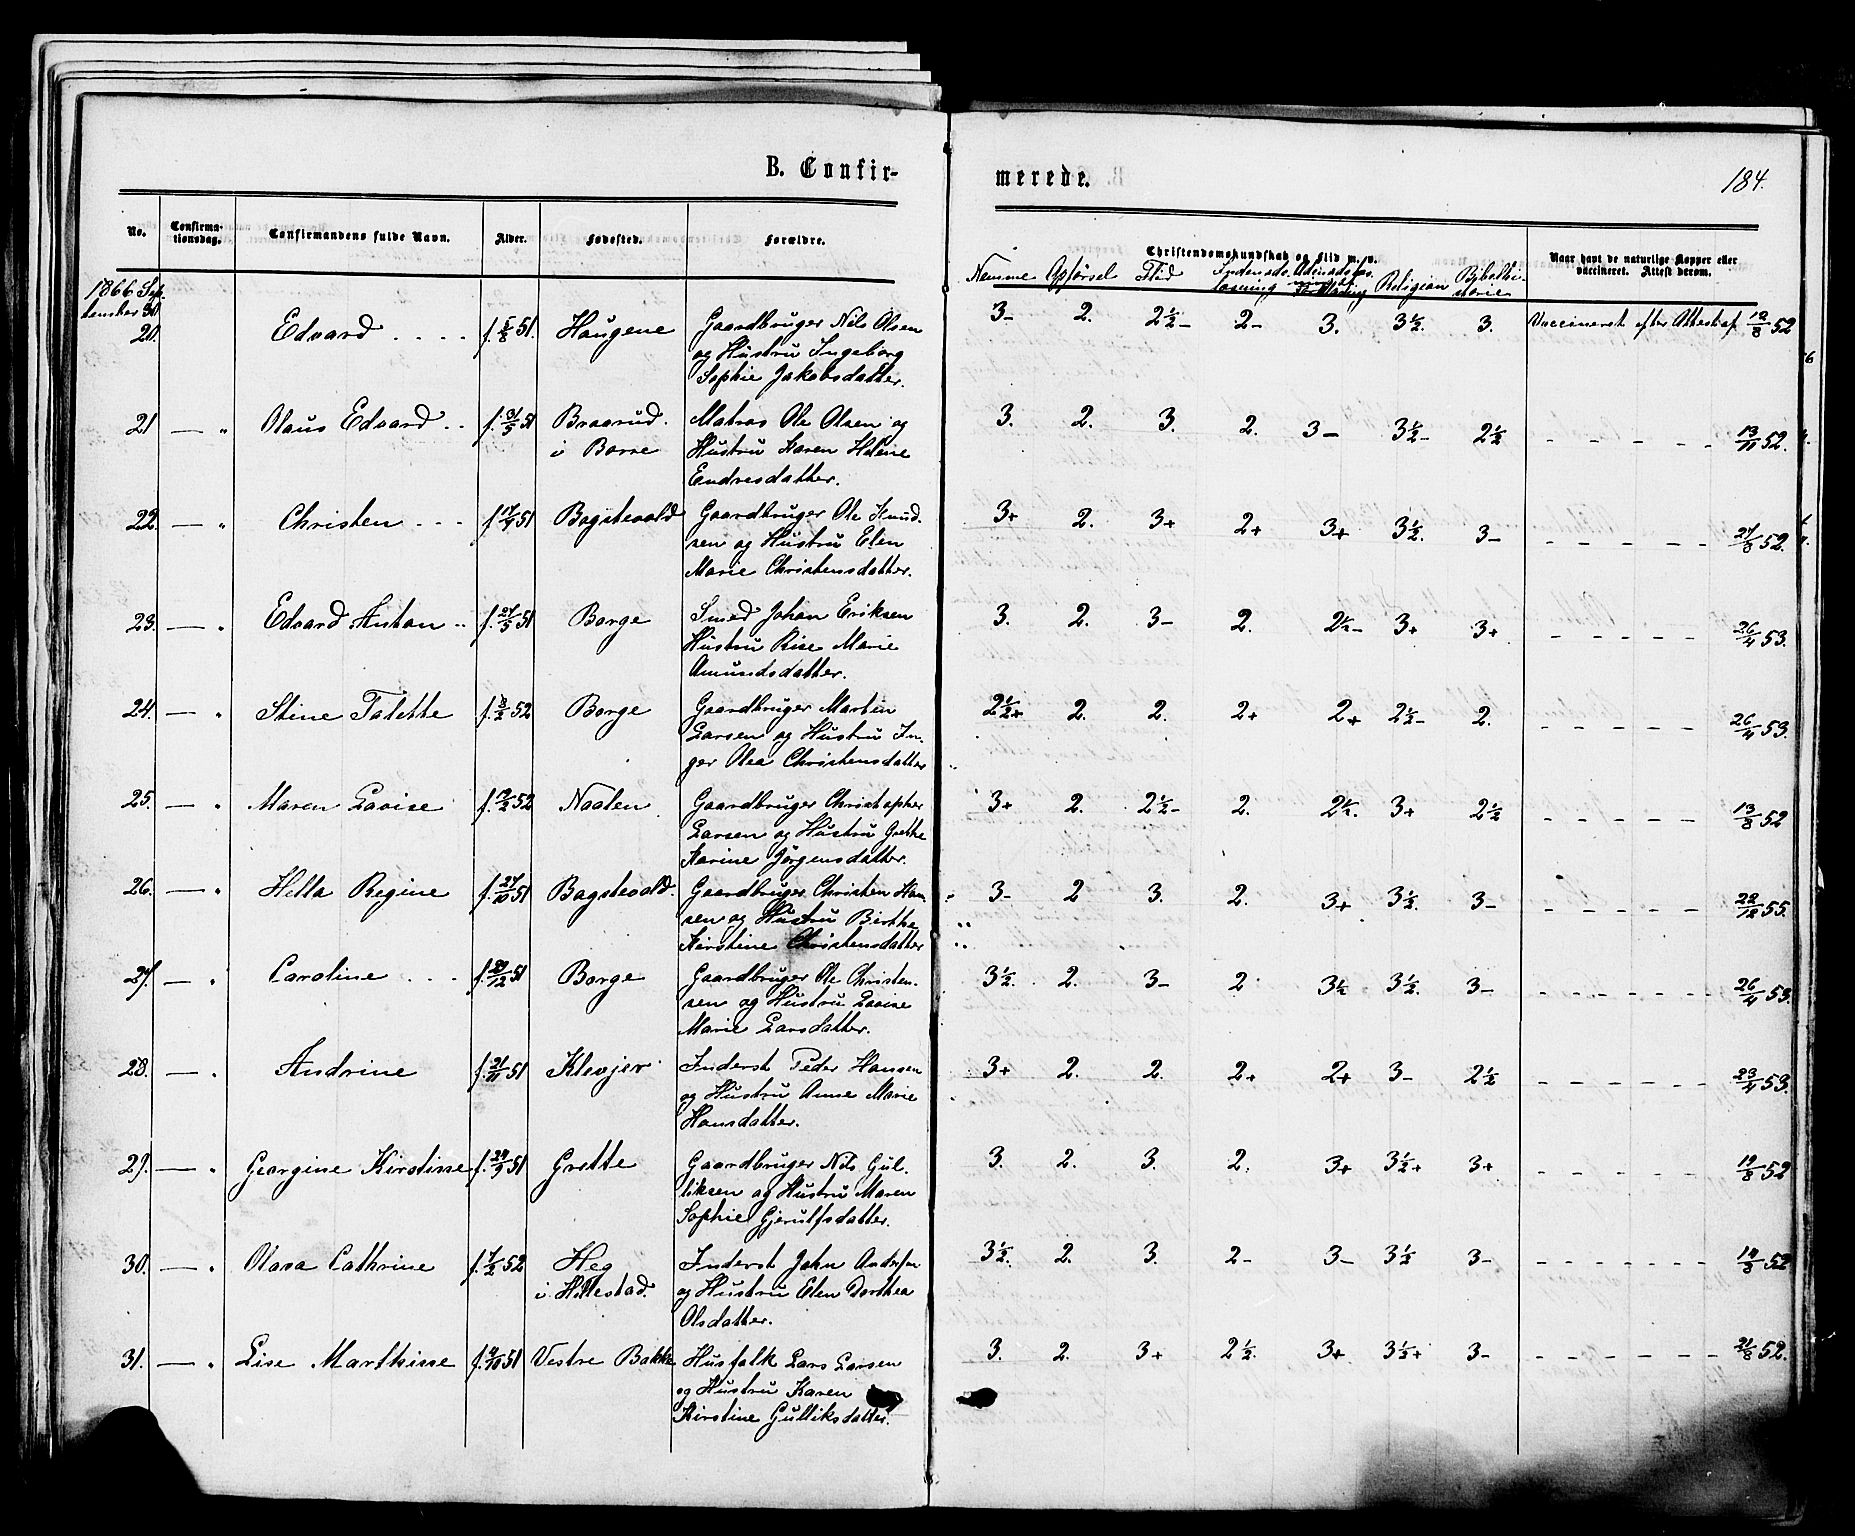 B. Confirmerede.
184.
No. Confirmationsdag. Confirmandens fulde Navn. Alder. Fødested. Forældre. Christendomskundskab og Flid m. v. Naar havt de naturlige Kopper eller vaccineret. Attest derom.
Nemme Opførsel Flid Indenads- læsning Religion Bibelhistorie
1866 September 30
20. Edvard f. 5/8 51. Haugene Gaardbruger Nils Olsen 3- 2. 2½- 2- 3. 3½. 3. Vaccineret efter Attest af 12/8 52
og Hustru Ingeborg
Sophie Jakobsdatter.
21 — " Olaus Edvard f. 31/5 51 Braarud Matros Ole Olsen og 3. 2. 3. 2. 3- 3½- 2½ - - - - - 13/11 52.
i Borre Hustru Karen Helene
Endresdatter.
22. — " Christen f. 17/9 51 Bogstevold Gaardbruger Ole Knud- 3+ 2. 3+ 2+ 3+ 3½. 3- - - - - - 27/8 52.
sen og Hustru Elen
Marie Christensdatter.
23. — " Edvard Anton f. 27/5 51 Borge Smed Johan Eriksen 3. 2. 3- 2. 2½- 3+ 3+ - - - - - 26/4 53.
Hustru Rise Marie
Amundsdatter.
24. — " Stine Talette f. 8/2 52 Borge Gaardbruger Martin 2½+ 2. 2. 2+ 2+ 2½- 2. - - - - - 26/4 53.
Larsen og Hustru In-
ger Olea Christensdatter
25. — " Maren Lovise f. 19/2 52 Naalen Gaardbruger Christopher 3+ 2. 2½- 2. 2½. 3+ 2½ - - - - - 13/8 52
Larsen og Hustru Grethe
Karine Jørgensdatter.
26. — " Hella Regine f. 27/10 51 Bogstevold. Gaardbruger Christen Han- 3- 2 3. 2. 3+ 3½. 3- - - - - - 22/12 55.
sen og Hustru Birthe
Kirstine Christensdatter
27. — " Caroline f. 29/12 51 Borge Gaardbruger Ole Christen- 3½. 2. 3- 2 3½ 3½. 3- - - - - - - 26/4 53.
sen og Hustru Lovise
Marie Larsdatter.
28. — " Andrine f. 21/11 51 Klevjer Inderst Peder Hansen 3+ 2. 2. 2+ 2+ 3- 2½ - - - - - - 23/4 53.
og Hustru Anne Marie
Hansdatter.
29. — " Georgine Kirstine f. 29/9 51 Grette Gaardbruger Nils Gul- 3. 2. 3. 2. 3+ 3½+ 3+ - - - - - - 19/8 52
liksen og Hustru Maren
Sophie Gjerulfsdatter.
30. — " Olava Cathrine f. 7/2 52 Heg Inderst John Andersen 3½. 2. 3. 2- 3- 3½ 3- - - - - - - 14/8 52
i Hillestad. og Hustru Elen Dorthea
Olsdatter.
31. — " Lise Marthine f. 4/10 51 Vestre Bakke Husfolk Lars Larsen 3. 2. 3+ 2½. 3+ 3½+ 3- - - - - - - 21/8 52.
og Hustru Karen
Kirstine Gulliksdatter.